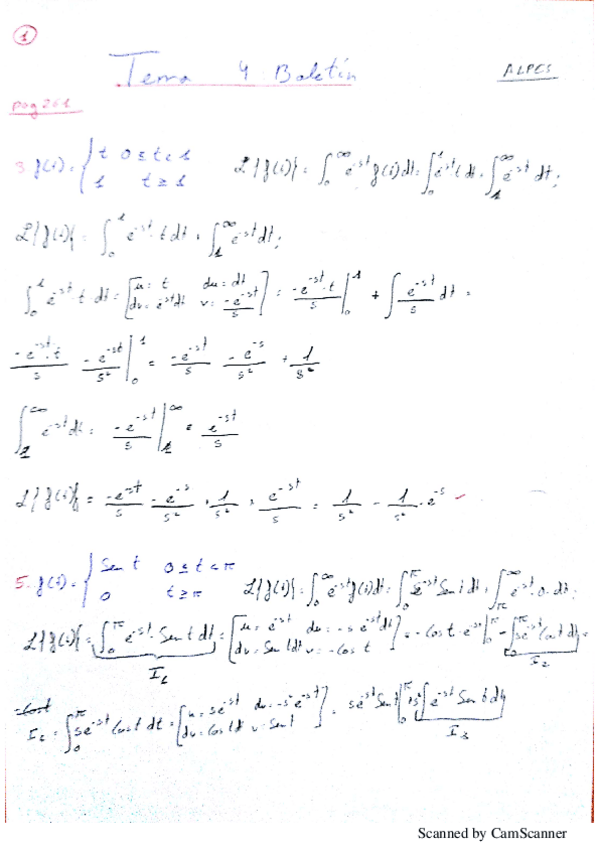 1
Tema 4 Boletín
ALPES
pag 261
3. f(t) = { t 0 ≤ t < 1
1 t ≥ 1
L{f(t)} = ∫₀^∞ e^-st f(t) dt = ∫₀^1 e^-st t dt + ∫₁^∞ e^-st dt;
L{f(t)} = ∫₀^1 e^-st · t dt + ∫₁^∞ e^-st dt;
∫₀^1 e^-st · t dt = [u = t du = dt
dv = e^-st dt v = -e^-st/s] = -e^-st · t/s |₀^1 + ∫ e^-st/s dt =
-e^-st · t/s - e^-st/s² |₀^1 = -e^-st/s - e^-s/s² + 1/s²
∫₁^∞ e^-st dt = -e^-st/s |₁^∞ = e^-st/s
L{f(t)} = -e^-st/s - e^-s/s² + 1/s² + e^-st/s = 1/s² - 1/s² · e^-s
5. f(t) = { Sen t 0 ≤ t < π
0 t ≥ π
L{f(t)} = ∫₀^∞ e^-st f(t) dt = ∫₀^π e^-st Sen t dt + ∫_π^∞ e^-st · 0 · dt;
L{f(t)} = ∫₀^π e^-st · Sen t dt = [u = e^-st du = -s e^-st dt
dv = Sen t dt v = -Cos t] = -Cos t · e^-st |₀^π - ∫₀^π s e^-st Cos t dt =
I₁
I₂
∫₀^π s e^-st Cos t dt = [u = s e^-st du = -s² e^-st
dv = Cos t dt v = Sen t] = s e^-st Sen t |₀^π + s² ∫ e^-st Sen t dt
I₃
Scanned by CamScanner